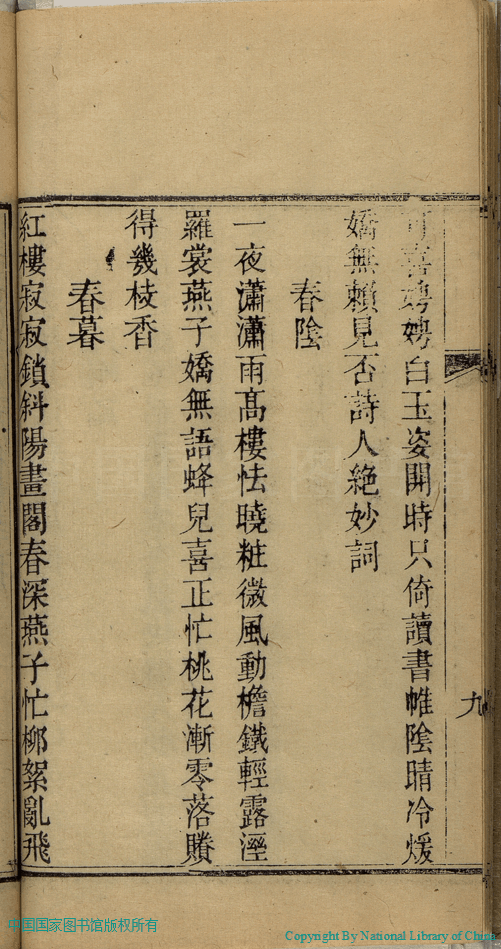 可喜娉娉白玉姿開時只倚讀書帷陰晴冷煖
嬌無賴見否詩人絶妙詞
春陰
一夜瀟瀟雨高樓怯曉粧微風動檐鐵輕露溼
羅裳燕子嬌無語蜂兒喜正忙桃花漸零落賸
得幾枝香
春暮
紅樓寂寂鎖斜陽畫閣春深燕子忙柳絮亂飛
九
中国国家图书馆版权所有
Copyright By National Library of China